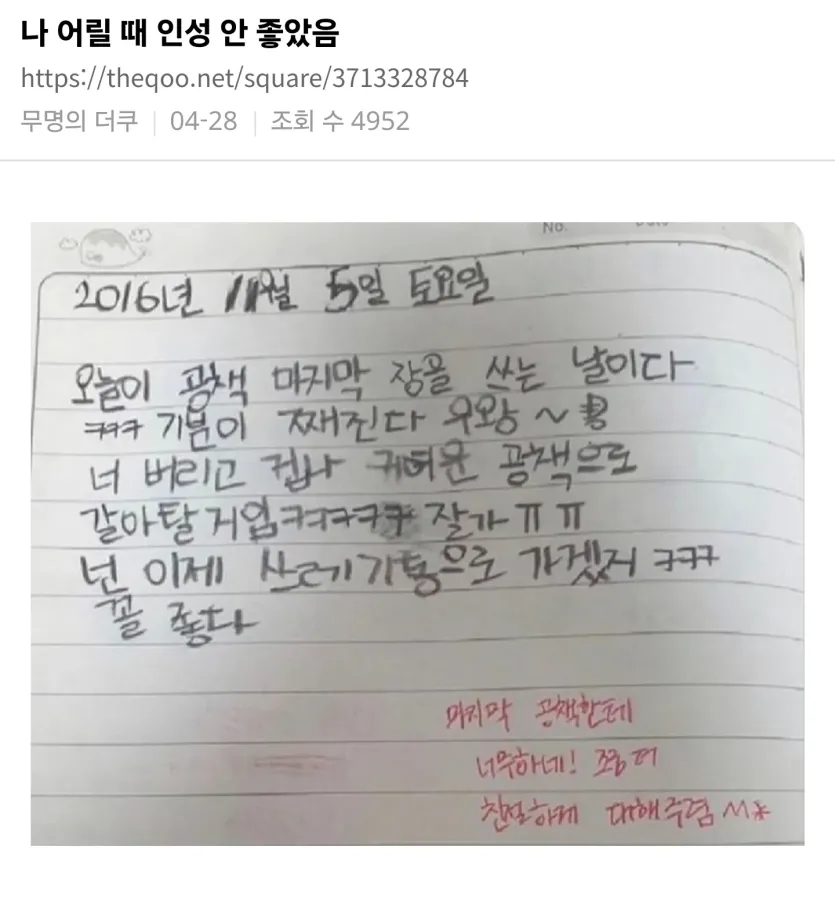 나 어릴 때 인성 안 좋았음
https://theqoo.net/square/3713328784
무명의 더쿠 | 04-28 | 조회 수 4952
No.
2016년 11월 5일 토요일
오늘이 공책 마지막 장을 쓰는 날이다
ㅋㅋㅋ 기분이 째진다 우왕~
너 버리고 귀여운 공책으로
갈아탈거임ㅋㅋㅋㅋㅋ 잘가ㅠㅠ
넌 이제 쓰레기통으로 가겠지 ㅋㅋㅋ
꼴 좋다
마지막 공책한테
너무하네! 좀 더
친절하게 대해주렴 ^^*